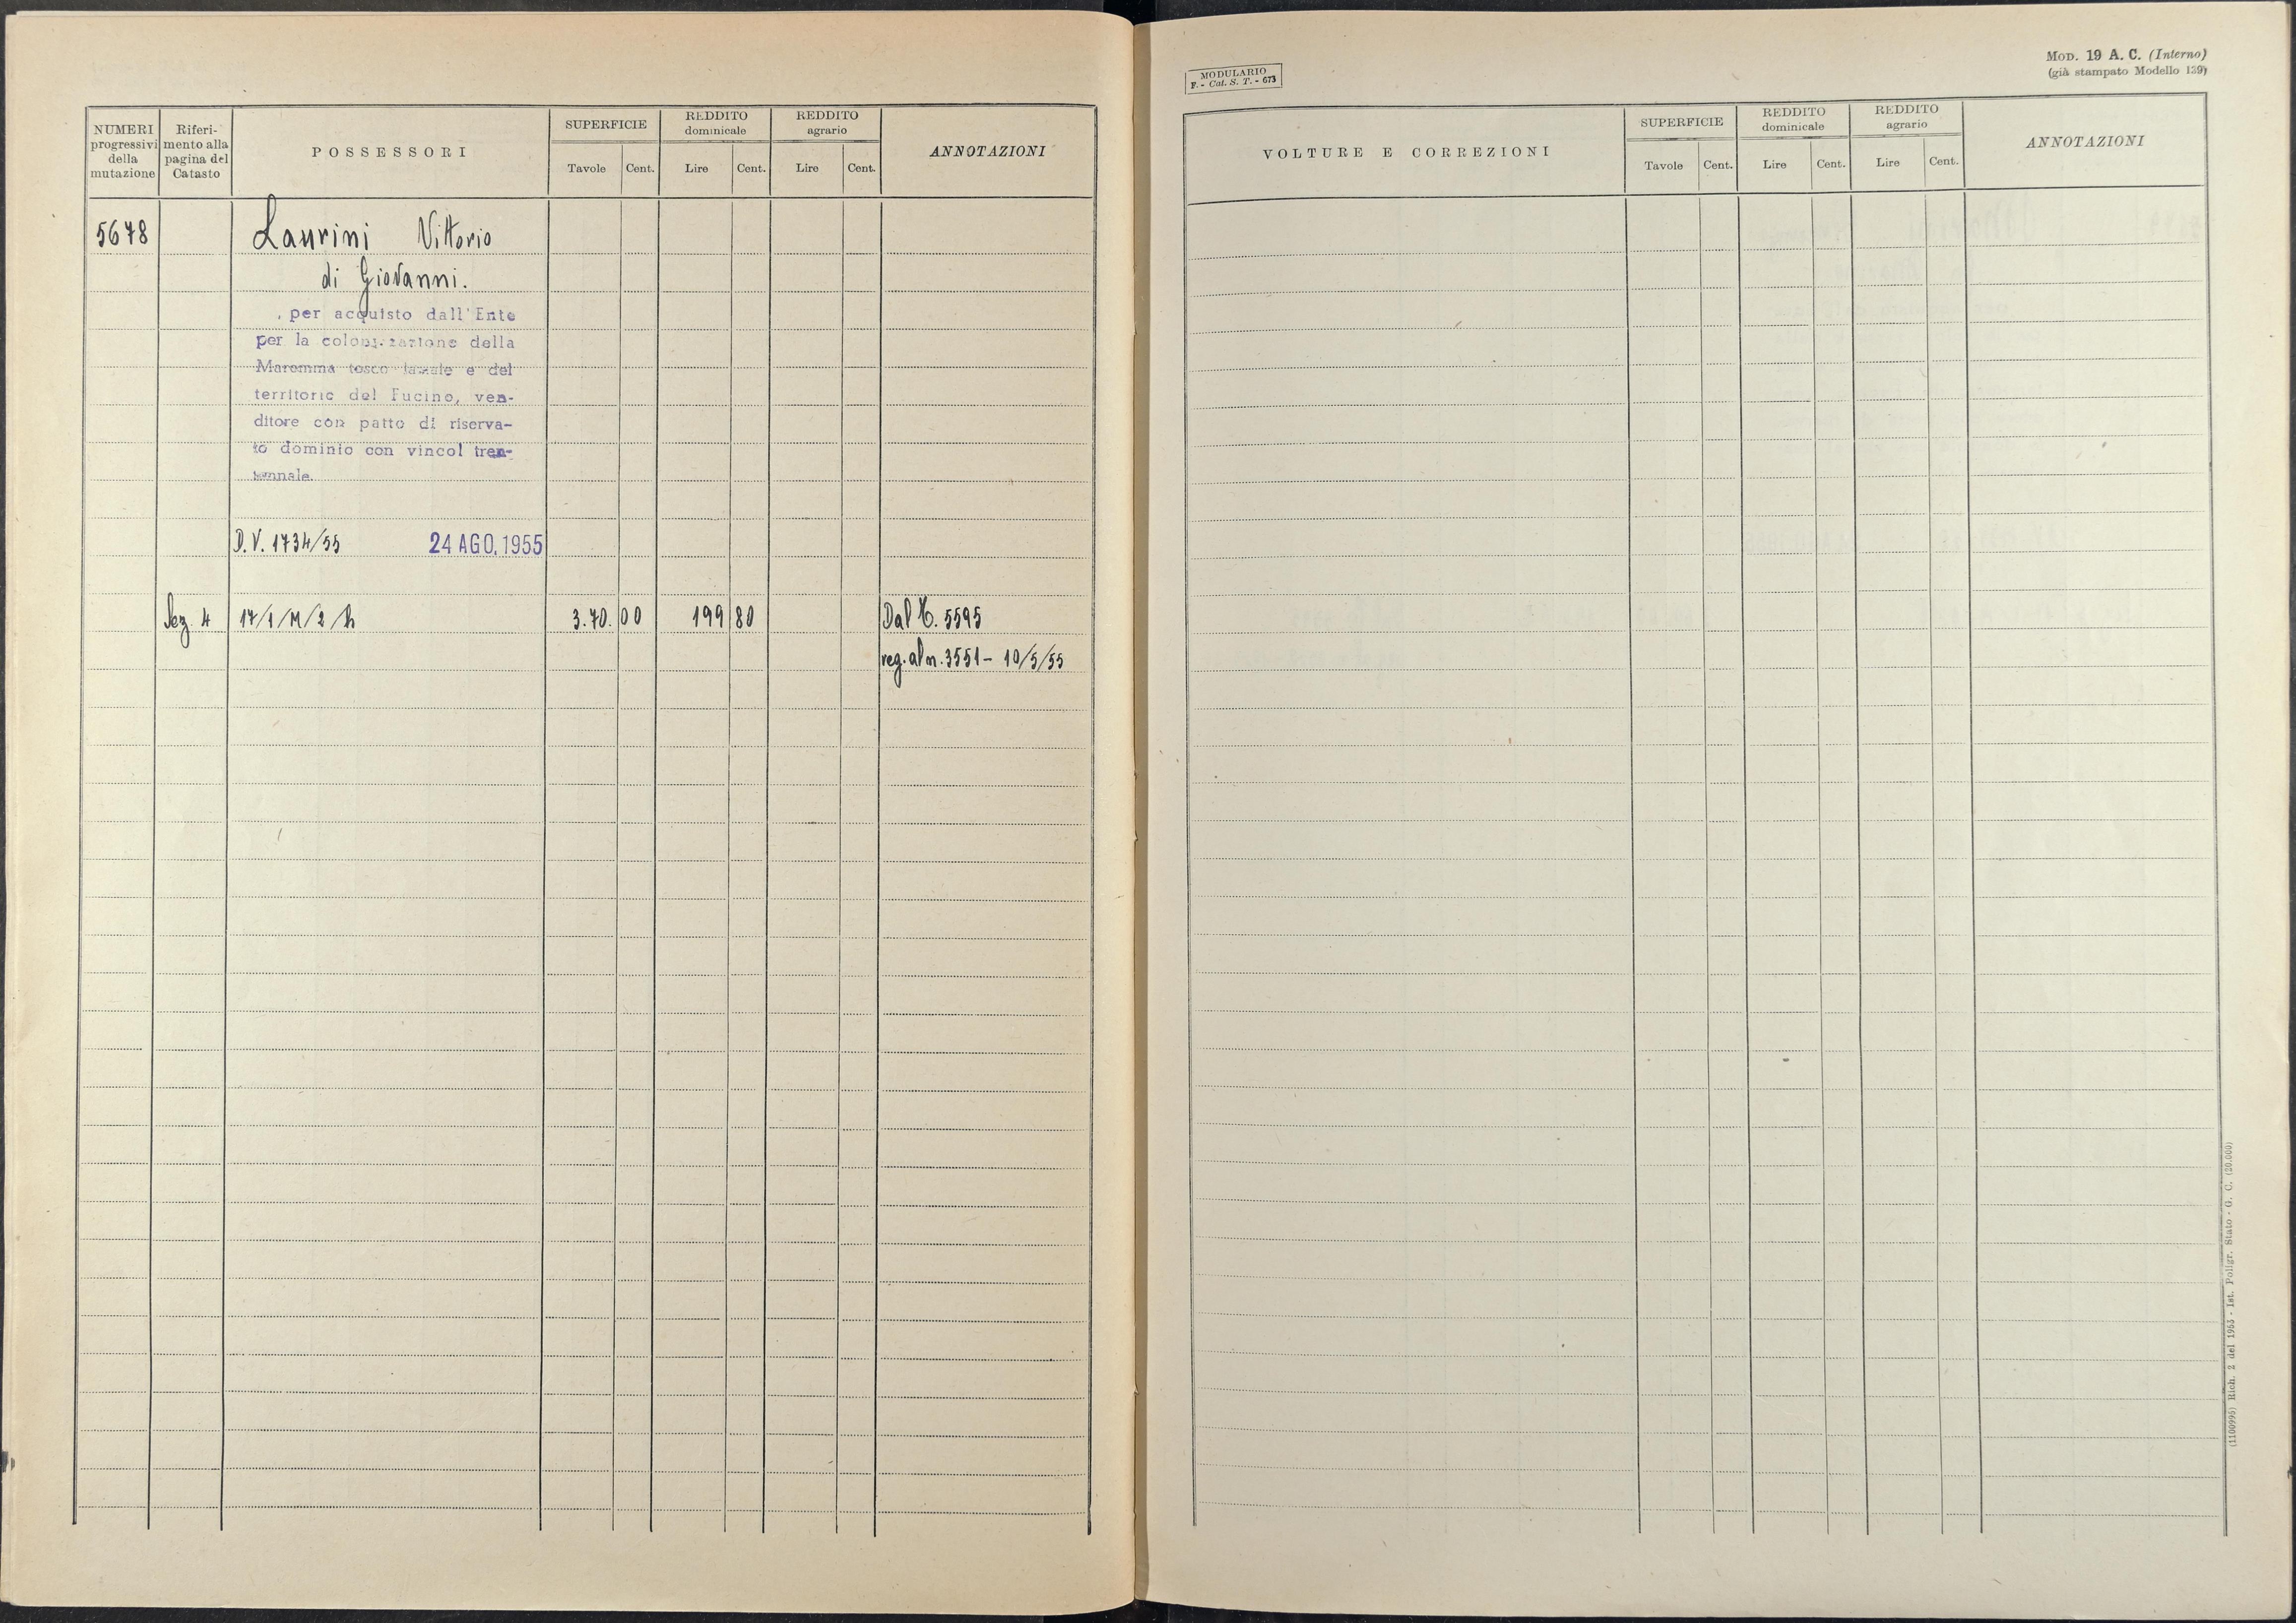 NUMERI progressivi della mutazione
Riferimento alla pagina del Catasto
POSSESSORI
SUPERFICIE
Tavole Cent.
REDDITO dominicale
Lire Cent.
REDDITO agrario
Lire Cent.
ANNOTAZIONI
5678 Laurini Vittorio
di Giovanni.
per acquisto dall'Ente
per la colonizzazione della
Maremma tosco laziale e del
territorio del Fucino, ven-
ditore con patto di riserva-
to dominio con vincol tren-
tennale.
D.V. 1734/55 24 AGO. 1955
Sez. 4 17/1/M/2/h 3.70. 00 199 80 Dal C. 5595
reg. al n. 3551 - 10/5/55
MODULARIO
F. - Cat. S. T. - 673
MOD. 19 A. C. (Interno)
(già stampato Modello 139)
VOLTURE E CORREZIONI
SUPERFICIE
Tavole Cent.
REDDITO dominicale
Lire Cent.
REDDITO agrario
Lire Cent.
ANNOTAZIONI
(1100995) Rich. 2 del 1953 - Ist. Poligr. Stato - G. C. (20.000)